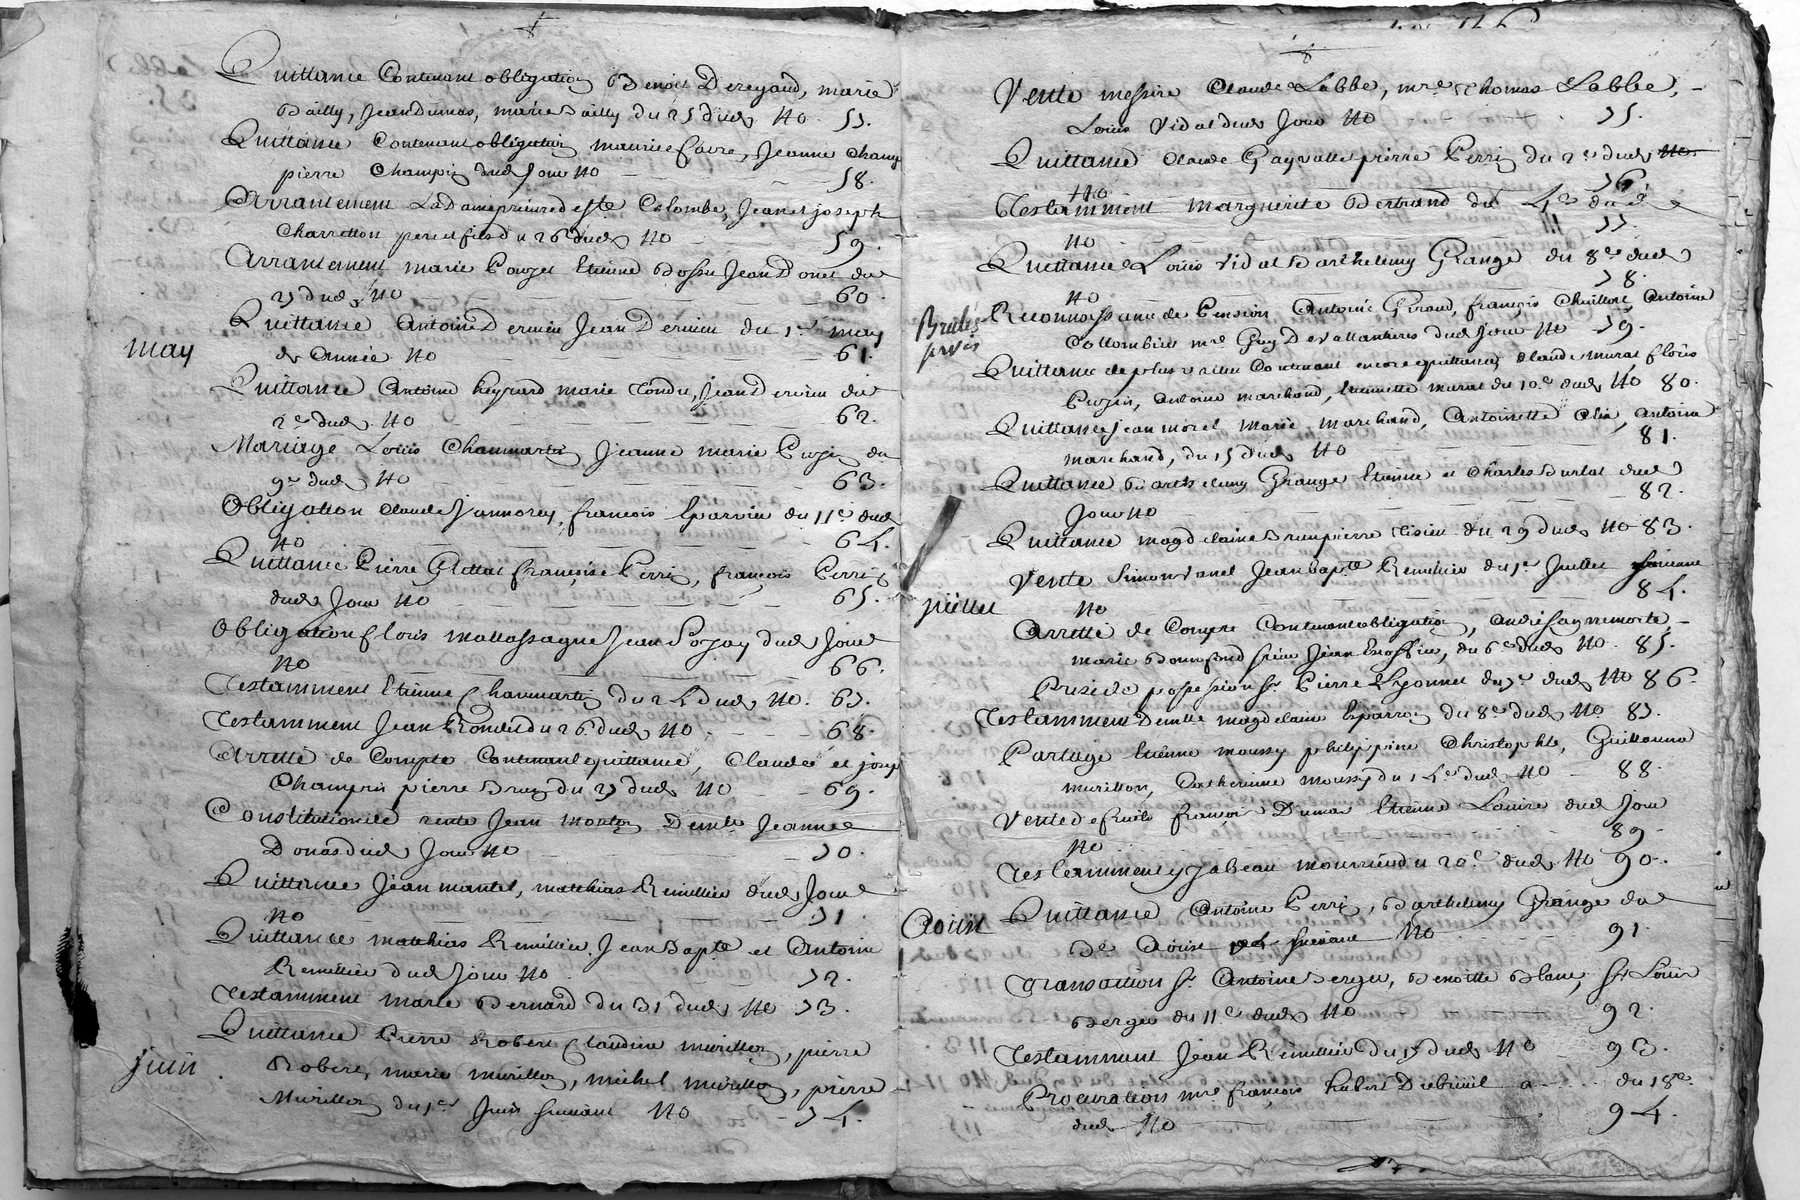 Quittance Contenant obligation Benoit Dereynaud, marie
Bailly, Jean Dumas, marie Bailly du 25 dud. No. 57.
Quittance Contenant obligation maurice favre, Jeanne Champ
pierre Champin dud. Jour No 58.
Arrantement La Dame prieure de ste Colombe, Jean et joseph
Charretton pere et fils du 26 dud. No 59.
Arrantement marie Poujet Etienne Jean Donet du
27 dud. No 60.
Quittance Antoine Dervieu Jean Dervieu du 1er may
may
de Année No 61.
Quittance Antoine heyrard marie Jean Dervieu du
2e dud. No 62.
Mariage Louis Chaumartin Jeanne marie du
9e dud. No 63.
Obligation Claude Jannorey, francois Eparvier du 11e dud.
No 64.
Quittance Pierre françoise Perrin, françois Perrin
dud. Jour No 65.
Obligation floris mallassagne Jean dud. Jour
No 66.
Testamment Etienne Chaumartin du 24 dud. No. 67.
Testamment Jean Rondet du 26 dud. No 68.
Arretté de Compte Contenant quittance, Claude et josep
Champin pierre du 27 dud. No 69.
Constitution de rente Jean monton Demlle Jeanne
Donas dud. Jour No 70.
Quittance Jean mantel, matthias Remillier dud. Jour
No 71
Quittance matthias Remillier Jean Bapte et Antoine
Remillier dud. Jour No 72.
Testamment marie Bernard du 31 dud. No 73.
Quittance Pierre Robert Claudine murillon, pierre
juin
Robert, marie murillon, michel murillon, pierre
Murillon du 1er Juin suivant No 74.
Vente messire Claude Labbe, mre Thomas Labbe,
Louis Vidal dud. Jour No 75.
Quittance Claude Gayvallet pierre Perrin du 2e dud. No
No 76.
Testamment marguerite Bertrand du 4e dud.
No 77.
Quittance Louis Vidal Barthelemy Grange du 8e dud.
No 78.
Reconnoissance de Pension Antoine Giraud, françois Antoine
Brulés
Collombier mre Guy Devallantieres dud. Jour No 79.
Quittance de plus vieille Contenant encore quittance Claude murat floris
Antoine marchand, murat du 10e dud. No 80.
Quittance Jean morel marie marchand, Antoinette Antoine
81.
marchand, du 15 dud. No
Quittance Barthelemy Grange Etienne et Charles Burlat dud.
82.
Jour No
Quittance magdelaine pierre du 29 dud. No 83.
Vente Simon Jean Bapte Remillier du 1er Juillet suivant
84.
juillet
No
Arretté de Compte Contenant obligation, André
marie Jean du 6e dud. No. 85.
Prise de possession sr. Pierre Lyonnet du 7e dud. No 86.
Testamment Demlle magdelaine Eparron du 8e dud. No 87.
Partage Etienne moussy philippine Christophle, Guillaume
murillon, Catherine moussy du 14e dud. No 88.
Vente de fruits françois Dumas Etienne dud. Jour
89.
No
Testamment ysabeau du 20e dud. No 90.
Quittance Antoine Perrin, Barthelemy Grange du
Aoüst
suivant No 91.
Transaction sr. Antoine Berger, Benoitte Blanc, sr Louis
Berger du 11e dud. No 92.
Testamment Jean Remillier du 15 dud. No 93.
Procuration mre françois hubert Dubreüil du 18e
dud. No 94.